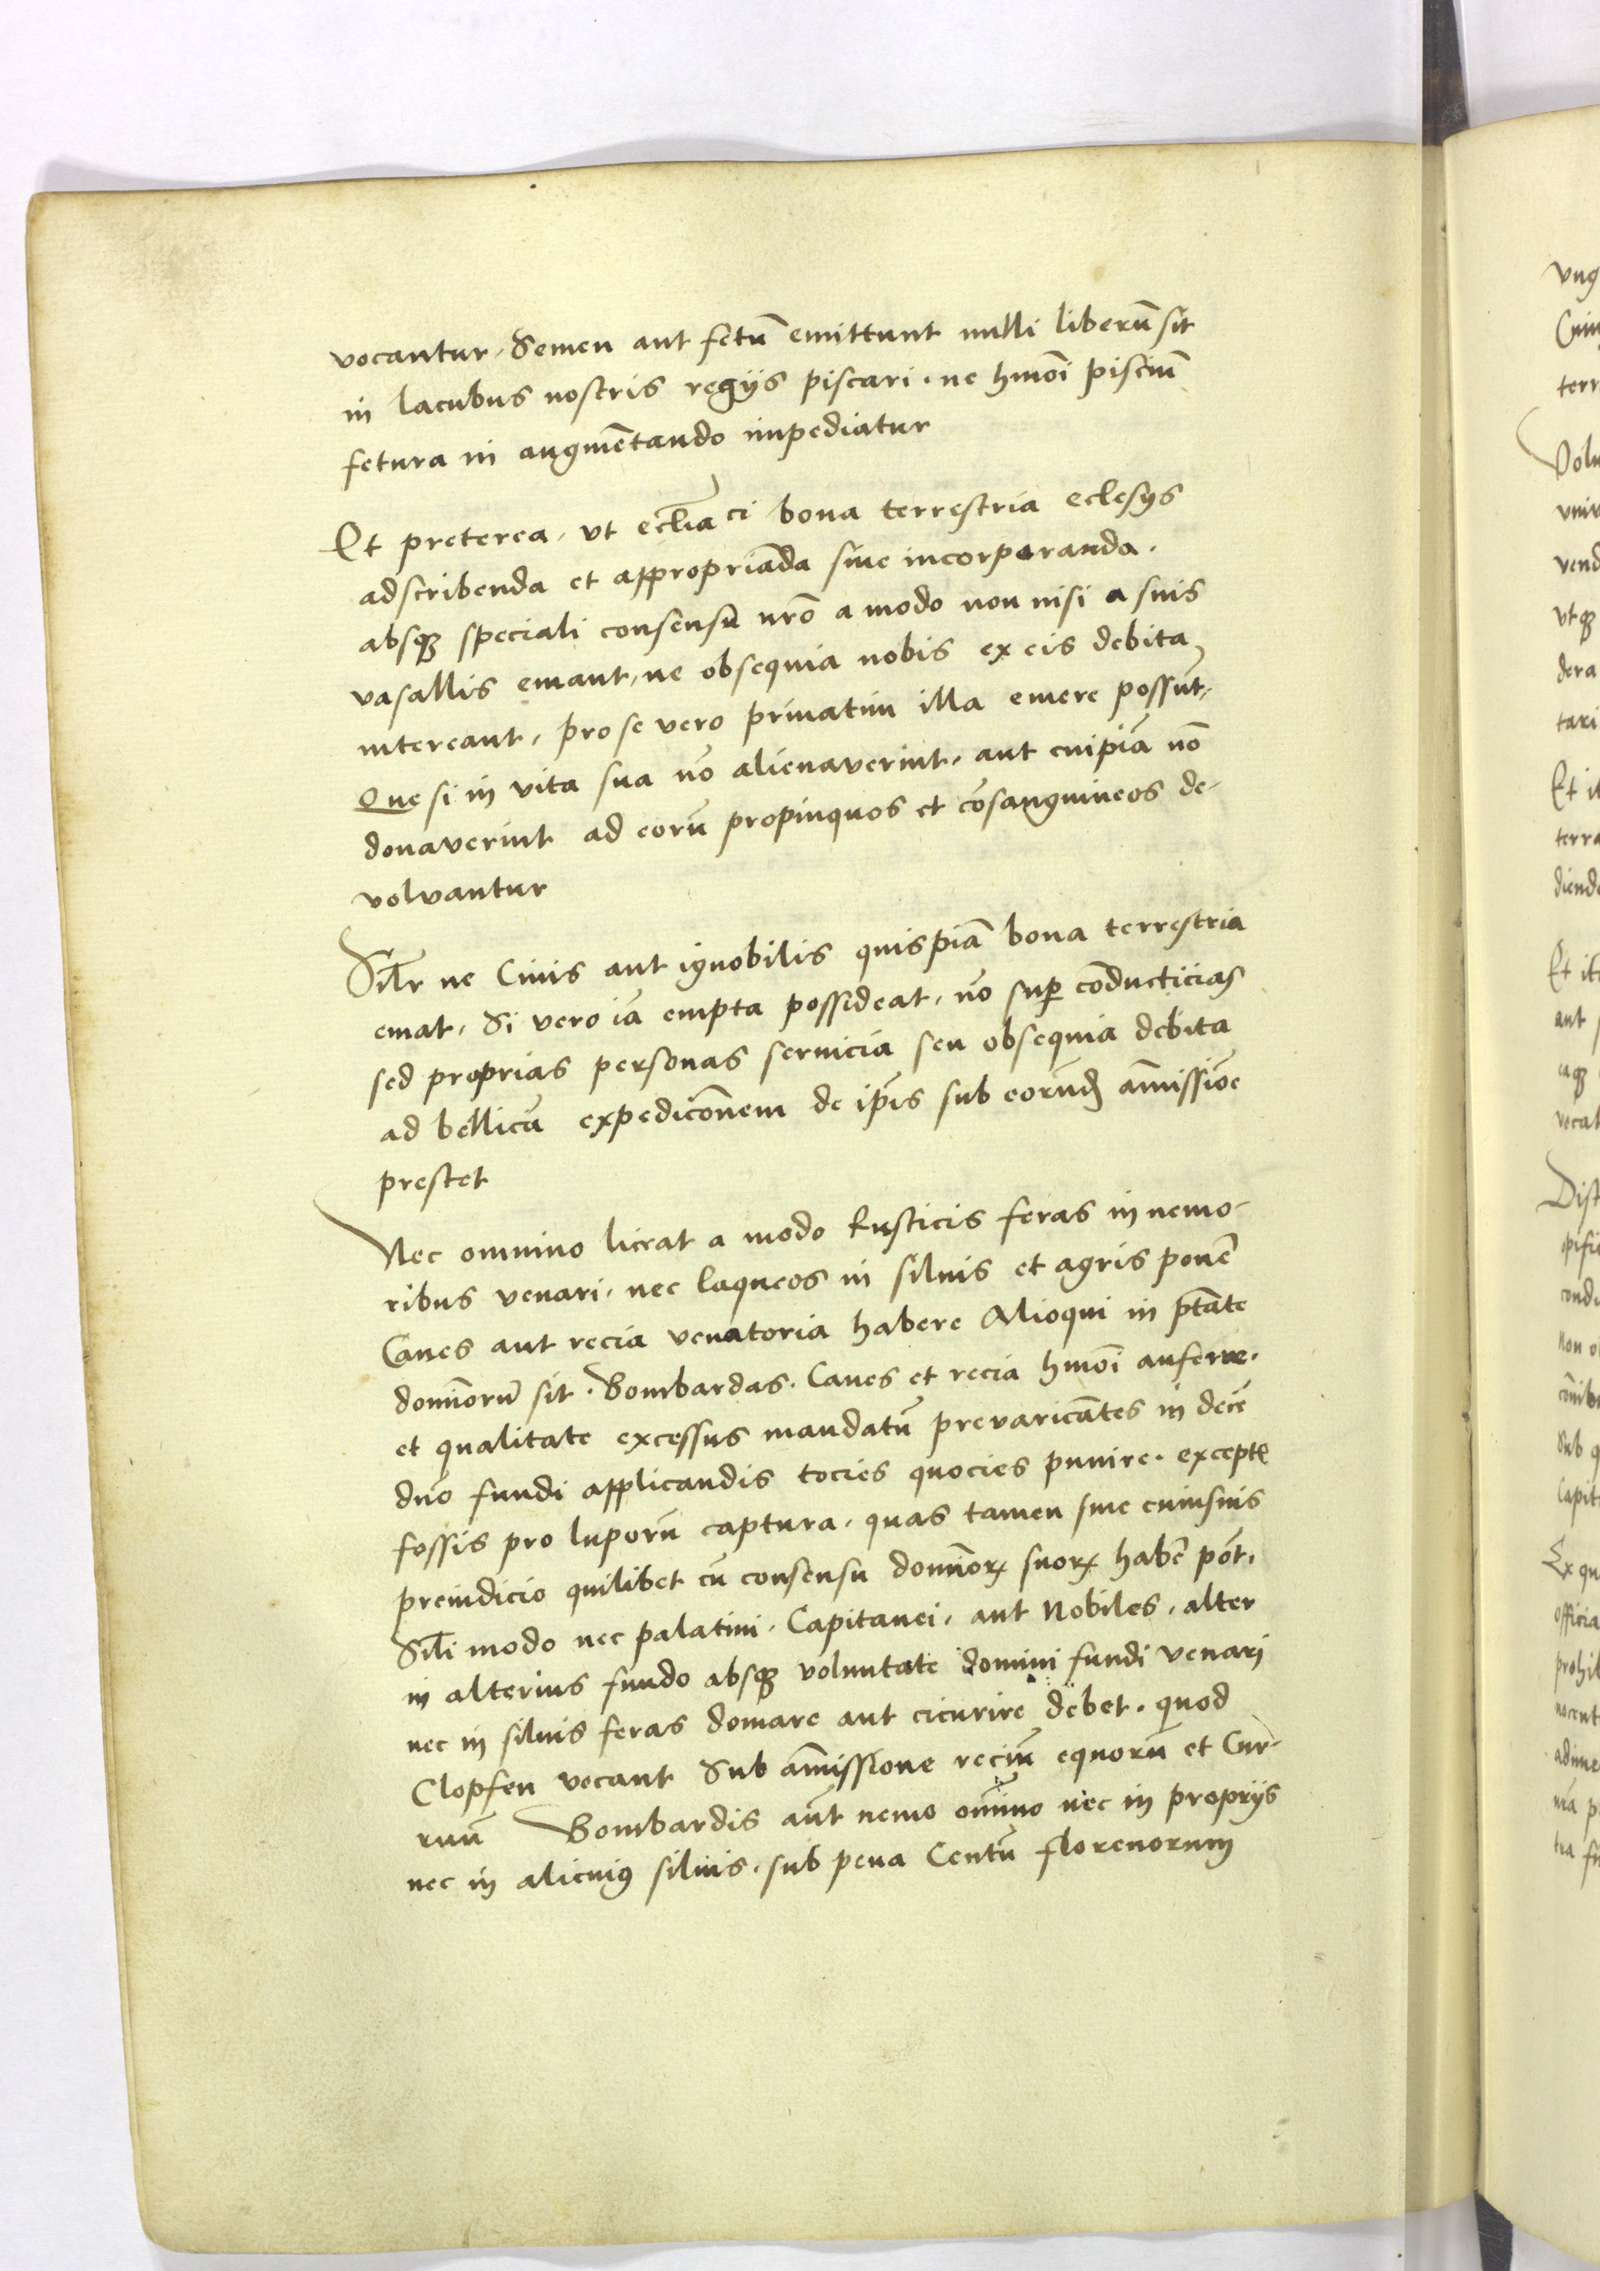 vocantur, Semen aut fetū emittunt nulli liberū sit
in lacubus nostris regijs piscari. ne hmōi pisciū
fetura in augmētando impediatur
Et preterea, vt ecl̄iaci bona terrestria eclesijs
adscribenda et appropriāda siue incorporanda.
absqȝ speciali consensu nr̄o a modo non nisi a suis
vasallis emant, ne obsequia nobis ex eis debita
intereant, pro se vero priuatim illa emere possūt,
Que si in vita sua nō alienaverint, aut cuipiā nō
donaverint ad eorū propinquos et cōsanguineos de-
volvantur
Sil̄r ne Ciuis aut ignobilis quispiā bona terrestria
emat, Si vero iā empta possideat, nō sup̄ cōducticias
sed proprias personas seruicia seu obsequia debita
ad bellicā expedicōnem de ip̄is sub eorūdȝ am̄issiōe
prestet
Nec omnino liceat a modo Rusticis feras in nemo-
ribus venari, nec laqueos in siluis et agris ponē
Canes aut recia venatoria habere Alioqui in ptāte
domīorū sit. Bombardas. Canes et recia hmōi auferre.
et qualitate excessus mandatū prevaricātes in decē
dn̄o fundi applicandis tocies quocies punire. exceptꝭ
fossis pro luporū captura, quas tamen sine cuiusuis
preiudicio quilibet cū consensu domīoꝝ suoꝝ habē pōt,
Sil̄i modo nec palatini, Capitanei, aut Nobiles, alter
in alterius fundo absqȝ voluntate domini fundi venari
nec in siluis feras domare aut cicurire debet. quod
Clopfen vocant Sub am̄issione reciū equorū et Cur-
ruū Bombardis aūt nemo om̄ino nec in proprijs
nec in alicuiꝰ siluis. sub pena Centū florenorum